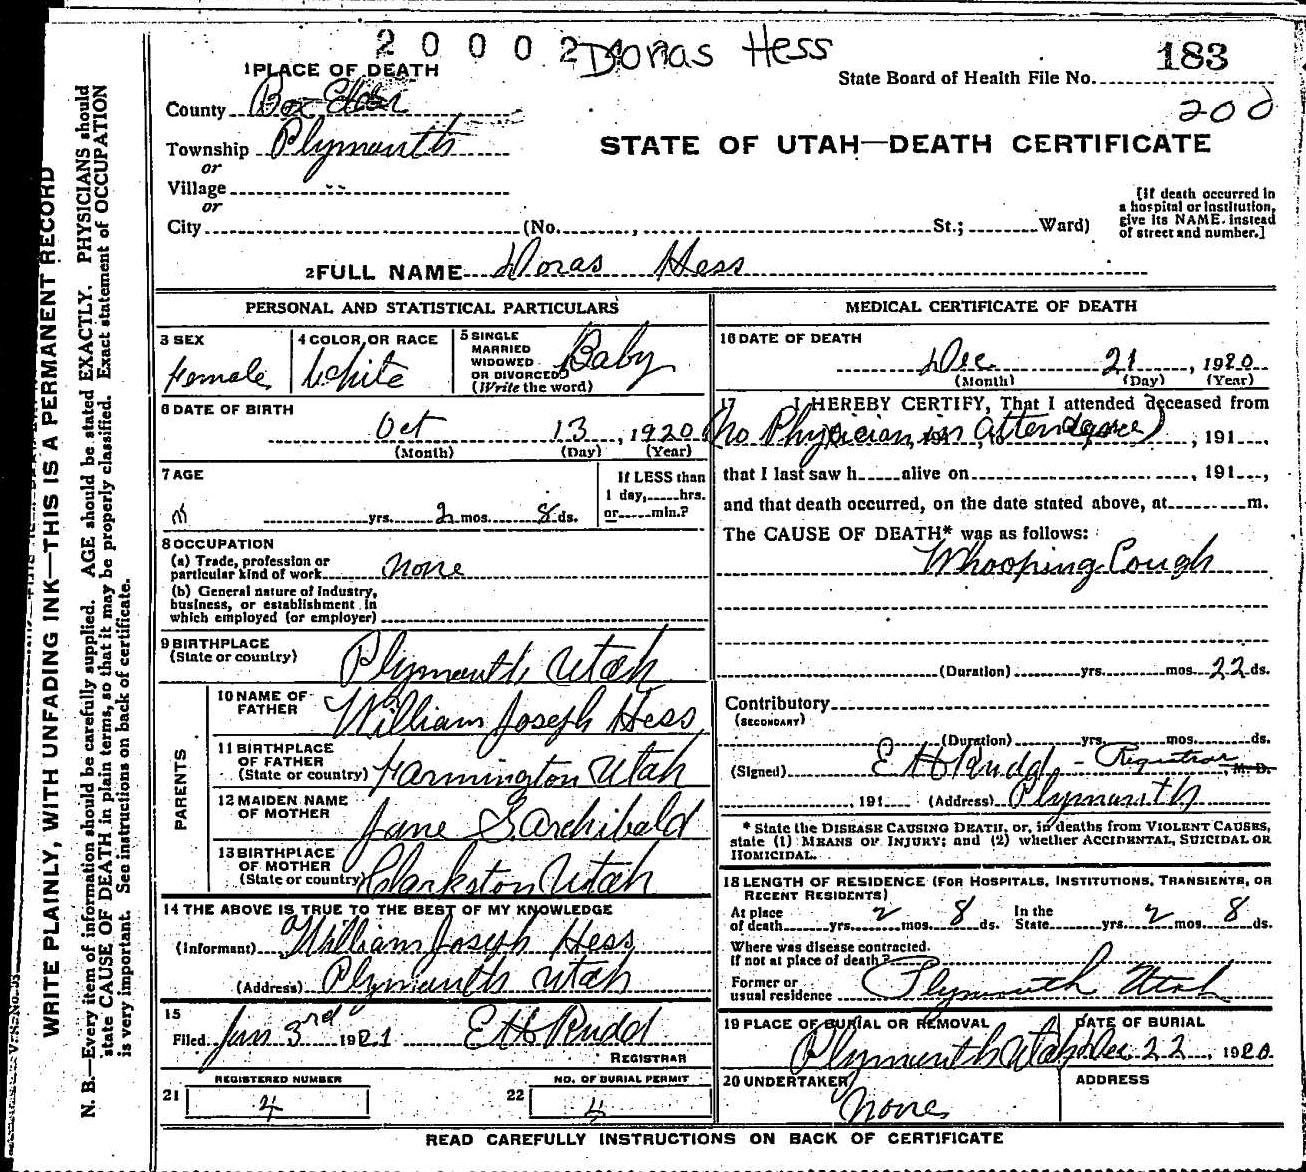 2 0 0 0 2 Donas Hess
183
State Board of Health File No.
200
1 PLACE OF DEATH
County Box Elder
Township Plymouth
or
Village
or
City (No. , St.; Ward)
STATE OF UTAH—DEATH CERTIFICATE
[If death occurred in
a hospital or institution,
give its NAME instead
of street and number.]
2 FULL NAME Doras Hess
PERSONAL AND STATISTICAL PARTICULARS
3 SEX
Female
4 COLOR OR RACE
White
5 SINGLE
MARRIED
WIDOWED
OR DIVORCED
(Write the word)
Baby
6 DATE OF BIRTH
Oct 13, 1920
(Month) (Day) (Year)
7 AGE
yrs. 2 mos. 8 ds.
If LESS than
1 day, hrs.
or min.?
8 OCCUPATION
(a) Trade, profession or
particular kind of work none
(b) General nature of industry,
business, or establishment in
which employed (or employer)
9 BIRTHPLACE
(State or country)
Plymouth Utah
PARENTS
10 NAME OF
FATHER
William Joseph Hess
11 BIRTHPLACE
OF FATHER
(State or country) Farmington Utah
12 MAIDEN NAME
OF MOTHER
Jane S Archibald
13 BIRTHPLACE
OF MOTHER
(State or country) Clarkston Utah
14 THE ABOVE IS TRUE TO THE BEST OF MY KNOWLEDGE
(Informant) William Joseph Hess
(Address) Plymouth Utah
15
Filed Jan 3rd 1921 E H Rudd
REGISTRAR
REGISTERED NUMBER
21 4
NO. OF BURIAL PERMIT
22 4
MEDICAL CERTIFICATE OF DEATH
16 DATE OF DEATH
Dec 21, 1920
(Month) (Day) (Year)
17 I HEREBY CERTIFY, That I attended deceased from
(No Physician in attendance) , 191 ,
that I last saw h alive on , 191 ,
and that death occurred, on the date stated above, at m.
The CAUSE OF DEATH* was as follows:
Whooping Cough
(Duration) yrs. mos. 22 ds.
Contributory
(SECONDARY)
(Duration) yrs. mos. ds.
(Signed) E H Rudd - Registrar, M. D.
, 191 (Address) Plymouth
* State the DISEASE CAUSING DEATH, or, in deaths from VIOLENT CAUSES,
state (1) MEANS OF INJURY; and (2) whether ACCIDENTAL, SUICIDAL OR
HOMICIDAL.
18 LENGTH OF RESIDENCE (FOR HOSPITALS, INSTITUTIONS, TRANSIENTS, OR
RECENT RESIDENTS)
At place
of death yrs. 2 mos. 8 ds.
In the
State yrs. 2 mos. 8 ds.
Where was disease contracted.
if not at place of death?
Former or
usual residence Plymouth Utah
19 PLACE OF BURIAL OR REMOVAL
Plymouth Utah
DATE OF BURIAL
Dec. 22, 1920
20 UNDERTAKER
None
ADDRESS
READ CAREFULLY INSTRUCTIONS ON BACK OF CERTIFICATE
WRITE PLAINLY, WITH UNFADING INK—THIS IS A PERMANENT RECORD
N. B.—Every item of information should be carefully supplied. AGE should be stated EXACTLY. PHYSICIANS should
state CAUSE OF DEATH in plain terms, so that it may be properly classified. Exact statement of OCCUPATION
is very important. See instructions on back of certificate.